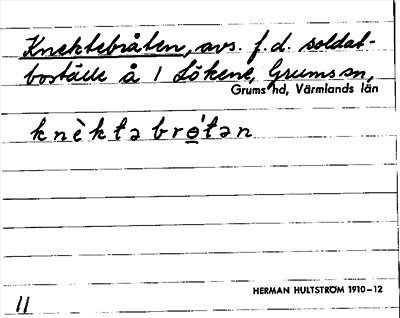 Knektebråten, avs. f.d. soldat-
boställe å 1 Lökene, Grums sn,
Grums hd, Värmlands län
knèktabrǫ́tən
HERMAN HULTSTRÖM 1910–12
11